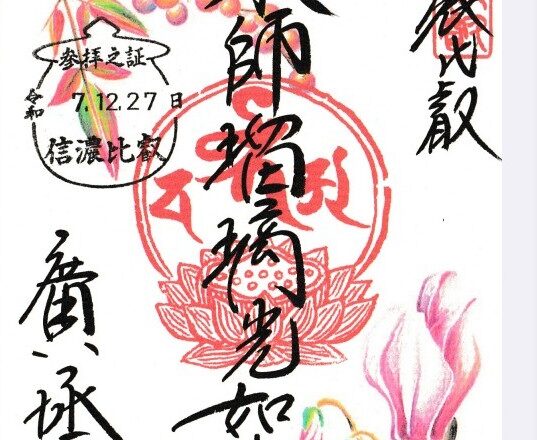 比叡
師瑠璃光如
参拝之証
令和
7.12.27日
信濃比叡
廣拯